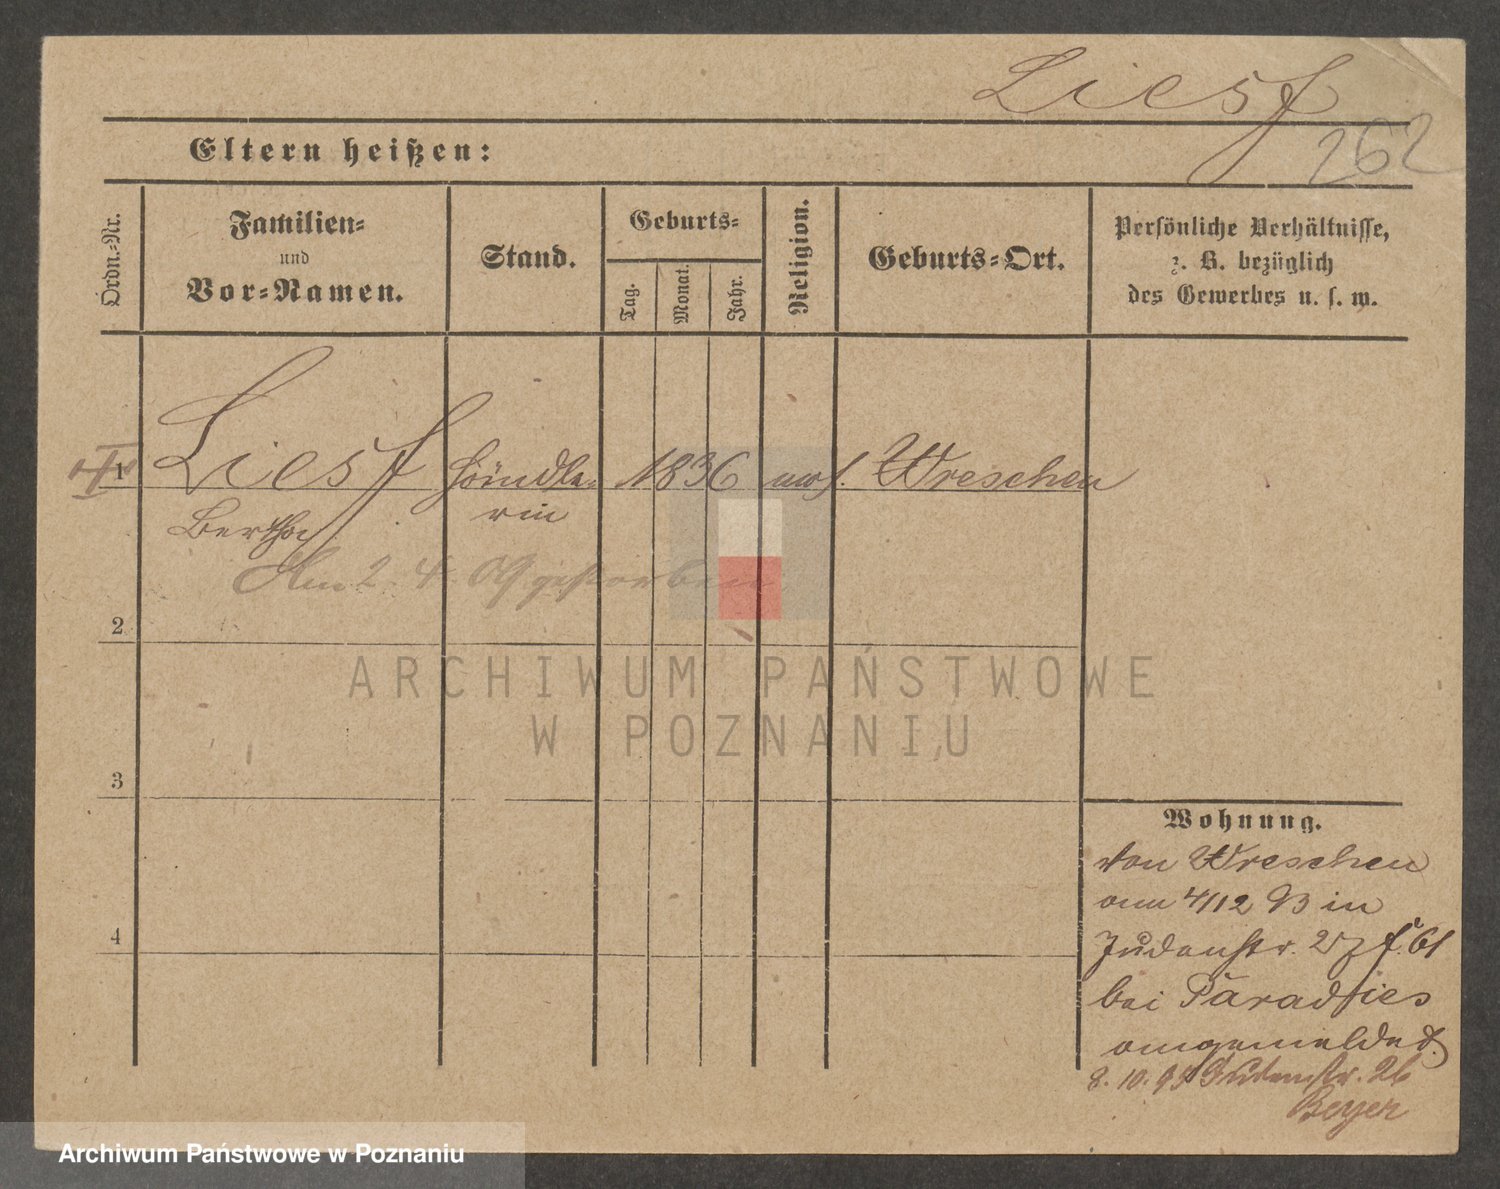 Liesf
262
Eltern heißen:
Ordn.-Nr.
Familien-
und
Vor-Namen.
Stand.
Geburts-
Tag.
Monat.
Jahr.
Religion.
Geburts-Ort.
Persönliche Verhältnisse,
z. B. bezüglich
des Gewerbes u. s. w.
1
Liesf Händle- 1836 mos. Wreschen
Bertha rin
Am 2. 4. 09 gestorben
2
3
4
Wohnung.
von Wreschen
am 4/12 93 in
Judenstr.
bei Paradies
angemeldet.
8. 10. 95 Judenstr. 26
Beyer
ARCHIWUM PAŃSTWOWE
W POZNANIU
Archiwum Państwowe w Poznaniu